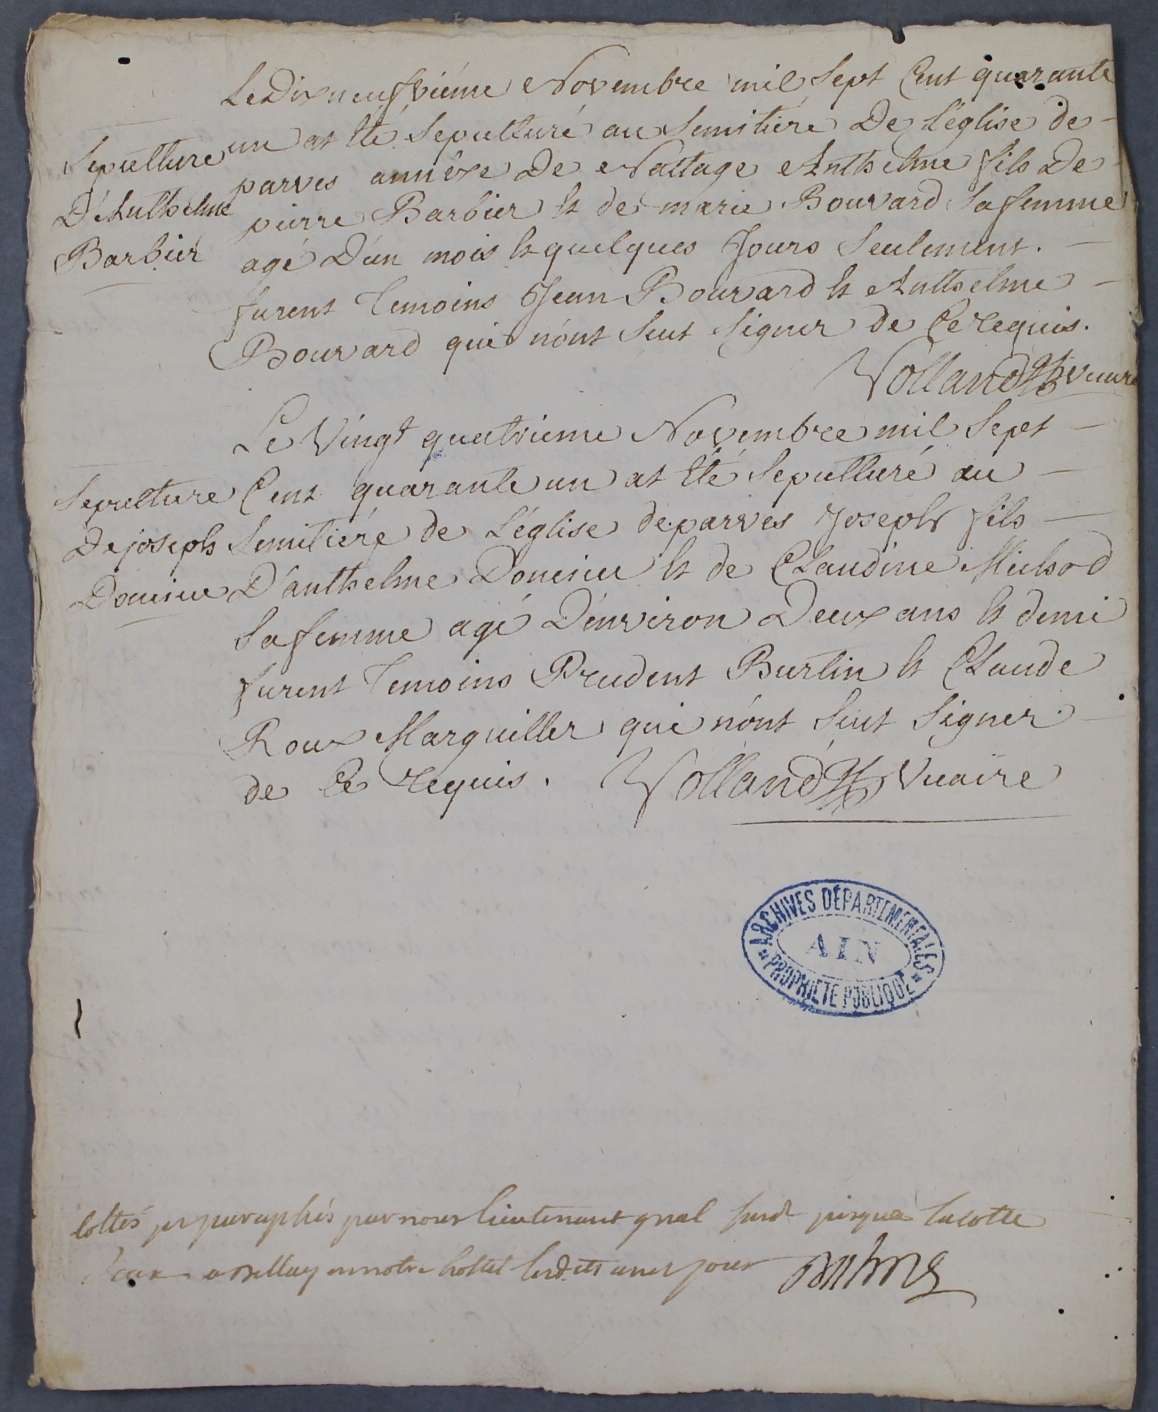 Le Dixneufviéme Novembre mil Sept Cent quarante
un at Eté Sepulturé au Semitiére De L'église de
parves annéxe de Nattage Anthelme fils De
pierre Barbier Et de marie Bouvard Sa femme
agé D'un mois Et quelques Jours Seulement.
furent Temoins Jean Bouvard Et Anthelme
Bouvard qui n'ont Seut Signer de Ce requis.
Sepulture
D'Anthelme
Barbier
Volland Vicaire
Le Vingt quatrieme Novembre mil Sept
Cent quarante un at Eté Sepulturé au
Semitiére de L'église de parves Joseph fils
D'anthelme Doucieu Et de Claudine Michod
Sa femme agé D'environ Deux ans Et demi
furent Temoins Prudent Burtin Et Claude
Roux Marguiller qui n'ont Seut Signer
de Ce requis. Volland Vicaire
Sepulture
De joseph
Doucieu
ARCHIVES DÉPARTEMENTALES
AIN
PROPRIÉTÉ PUBLIQUE
Cottés et paraphés par nous Lieutenant gnal jusqua la cotte
a Bellay en notre hottel Lesdits an et jour